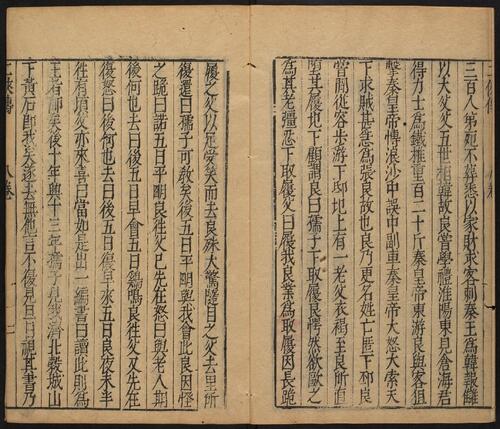 三百人弟死不葬悉以家財求客刺秦王為韓報讎
以大父父五世相韓故良嘗學禮淮陽東見倉海君
得力士為鐵椎重百二十斤秦皇帝東游良與客狙
擊秦皇帝博浪沙中誤中副車秦皇帝大怒大索天
下求賊甚急為張良故也良乃更名姓亡匿下邳良
嘗閒從容步游下邳圯上有一老父衣褐至良所直
墮其履圯下顧謂良曰孺子下取履良愕然欲歐之
為其老彊忍下取履父曰履我良業為取履因長跪
履之父以足受笑而去良殊大驚隨目之父去里所
復還曰孺子可教矣後五日平明與我會此良因怪
之跪曰諾五日平明良往父已先在怒曰與老人期
後何也去曰後五日早會五日鷄鳴良往父又先在
復怒曰後何也去曰後五日復早來五日良夜未半
往有頃父亦來喜曰當如是出一編書曰讀此則為
王者師矣後十年興十三年孺子見我濟北穀城山
下黃石即我矣遂去無他言不復見旦日視其書乃